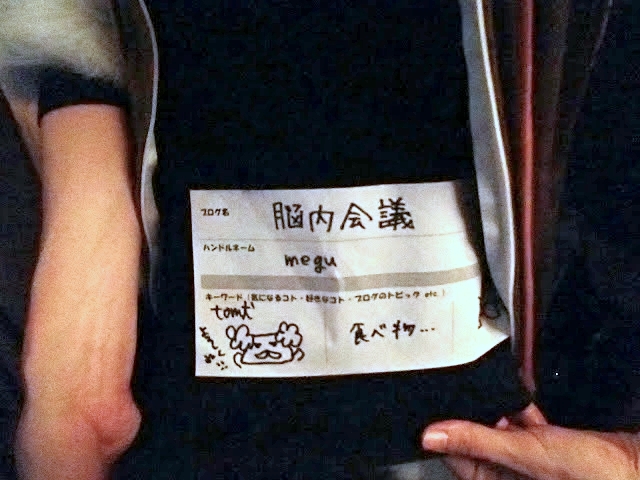 ブログ名
脳内会議
ハンドルネーム
megu
キーワード (気になるコト・好きなコト・ブログのトピック etc.)
食べ物...